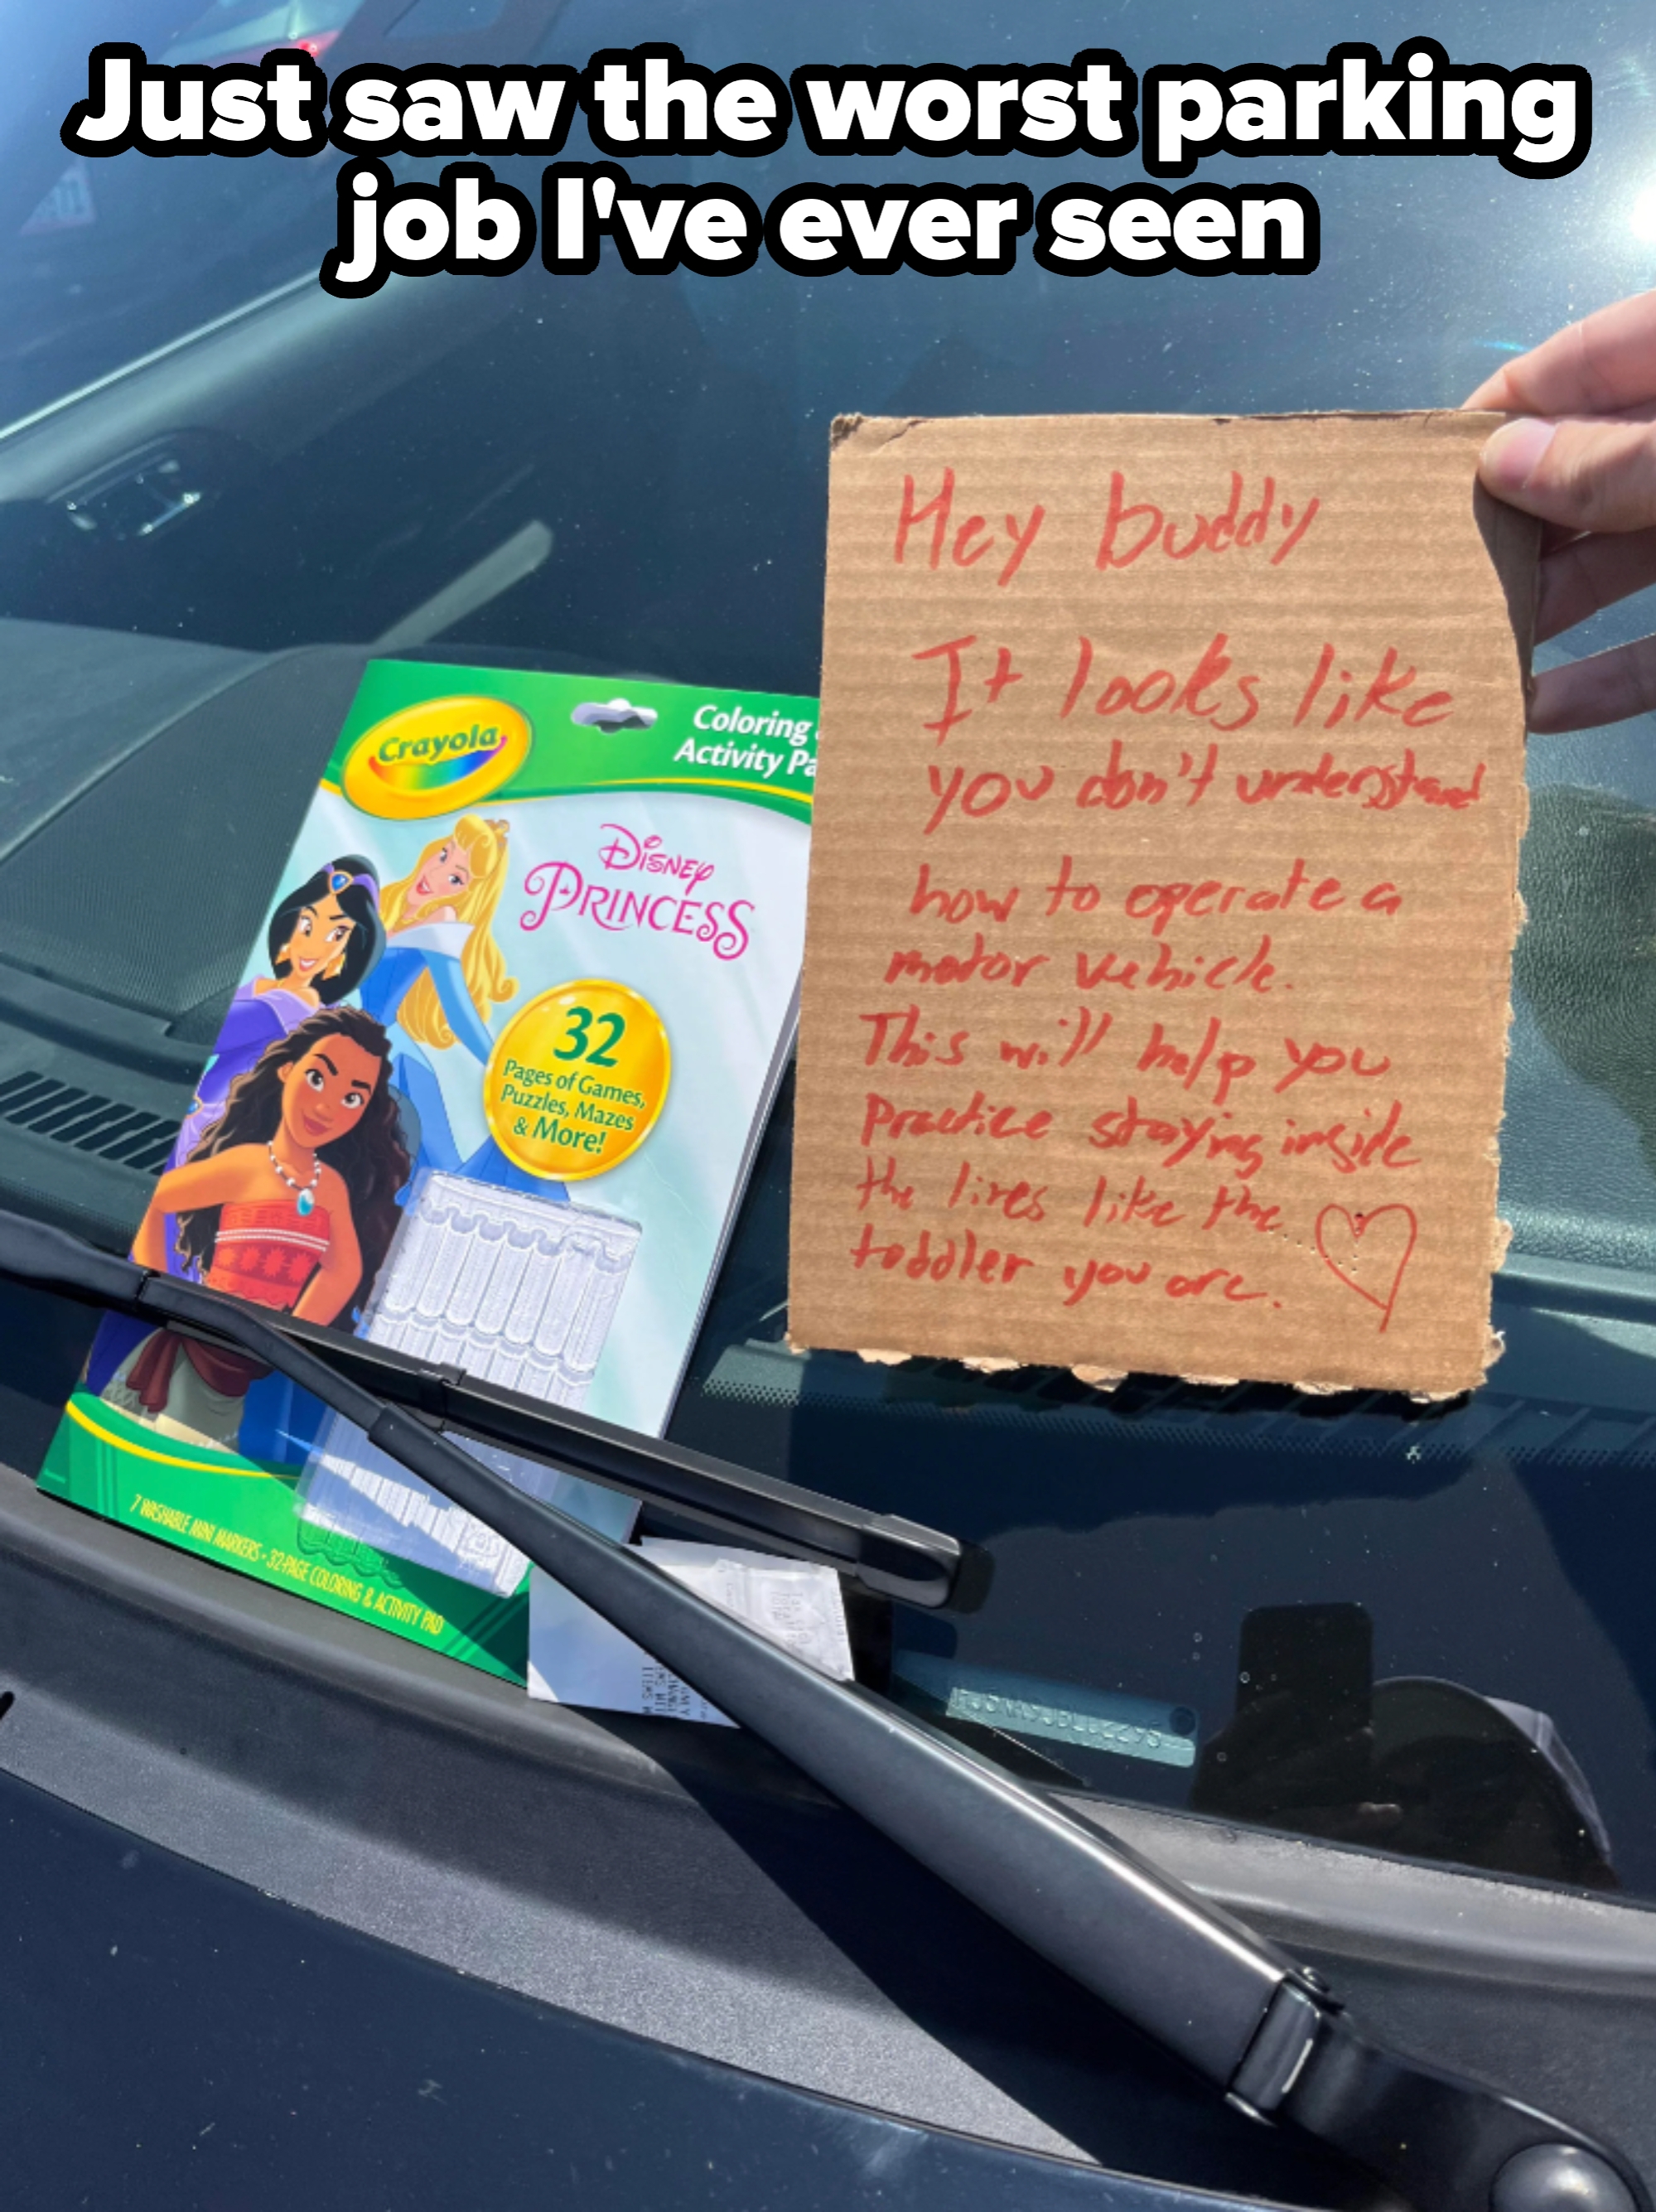 Just saw the worst parking
job I've ever seen
Hey buddy
It looks like
you don't understand
how to operate a
motor vehicle.
This will help you
practice staying inside
the lines like the
toddler you are.
Crayola
Coloring
Activity
Disney
PRINCESS
32
Pages of Games,
Puzzles, Mazes
& More!
7 WASHABLE MINI MARKERS • 32-PAGE COLORING & ACTIVITY PAD